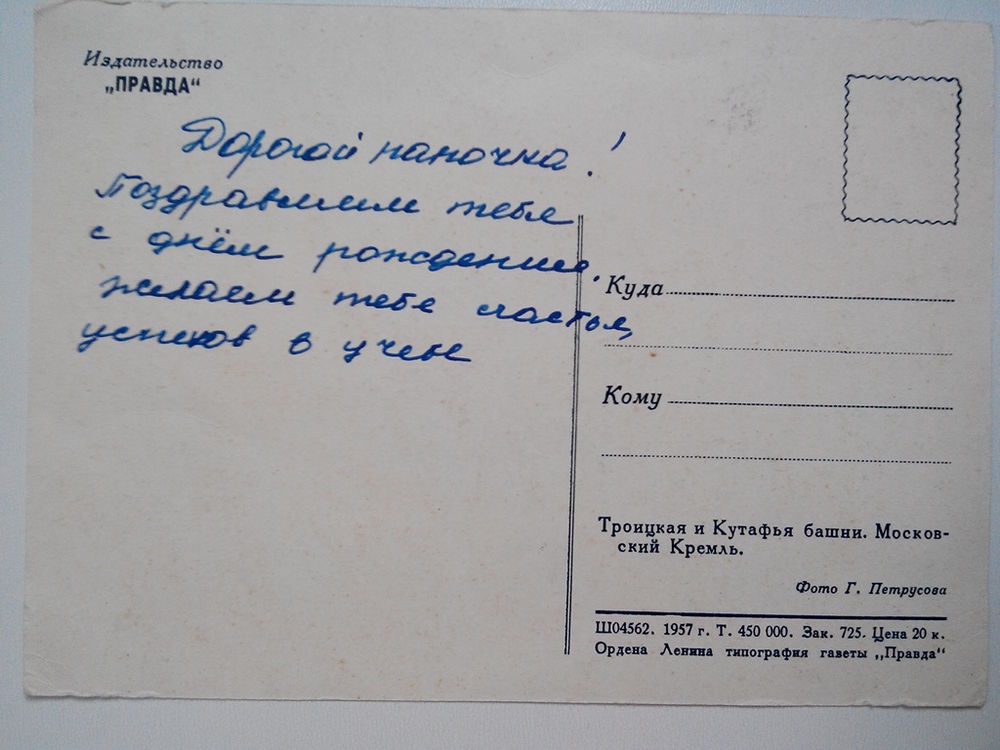 Издательство
„ПРАВДА“
Дорогой папочка!
Поздравляем тебя
с днём рождения,
желаем тебе счастья,
успехов в учебе
Куда
Кому
Троицкая и Кутафья башни. Москов-
ский Кремль.
Фото Г. Петрусова
Ш04562. 1957 г. Т. 450 000. Зак. 725. Цена 20 к.
Ордена Ленина типография газеты „Правда“